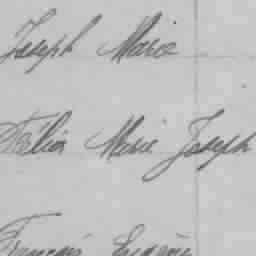 Joseph Marie
Félix Marie Joseph
François Eugène